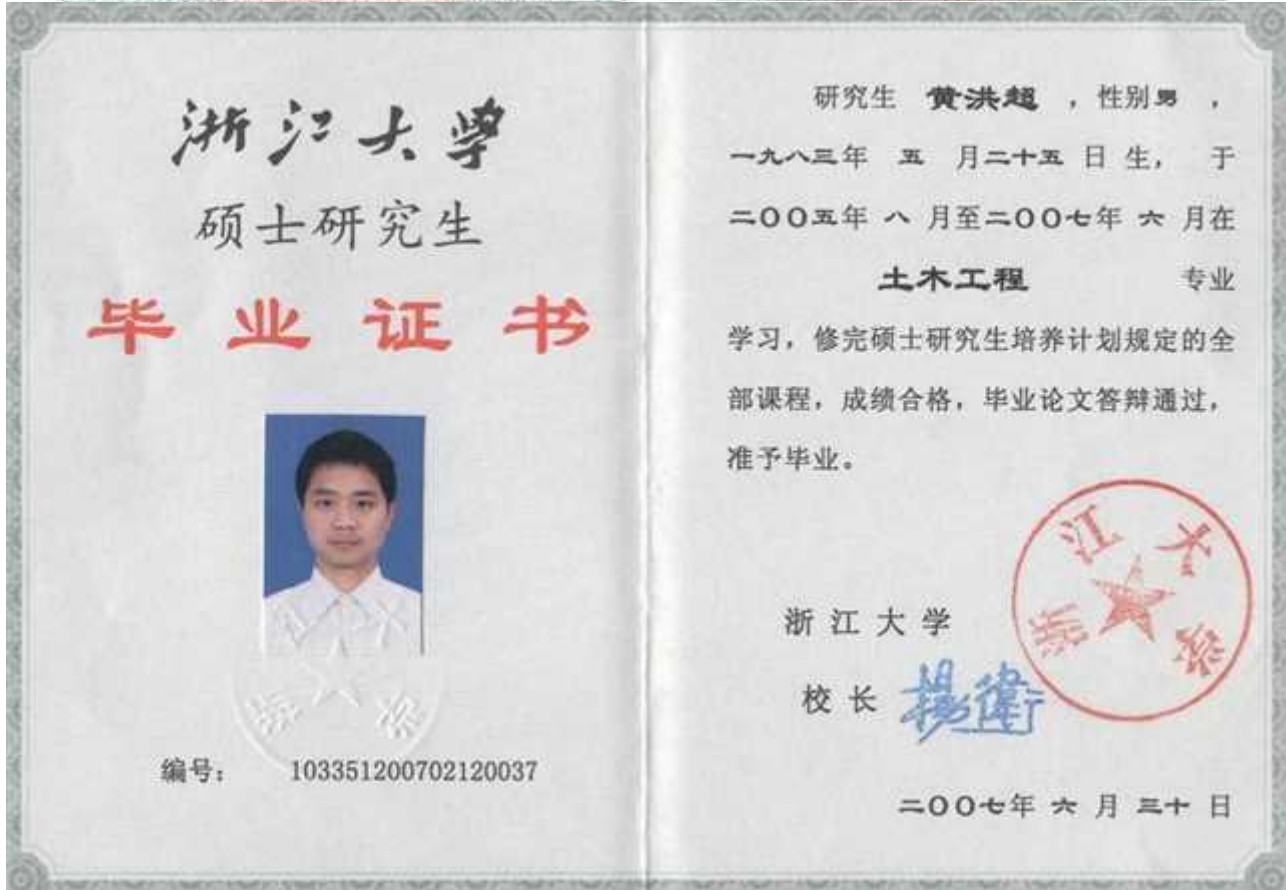 浙江大學
硕士研究生
毕业证书
编号: 103351200702120037
研究生 黄洪超 ，性别男 ，
一九八三年 五 月二十五 日 生， 于
二〇〇五年 八 月至二〇〇七年 六 月在
土木工程 专业
学习，修完硕士研究生培养计划规定的全
部课程，成绩合格，毕业论文答辩通过，
准予毕业。
浙江大学
浙江大学
校长 楊衛
二〇〇七年 六 月 三十 日